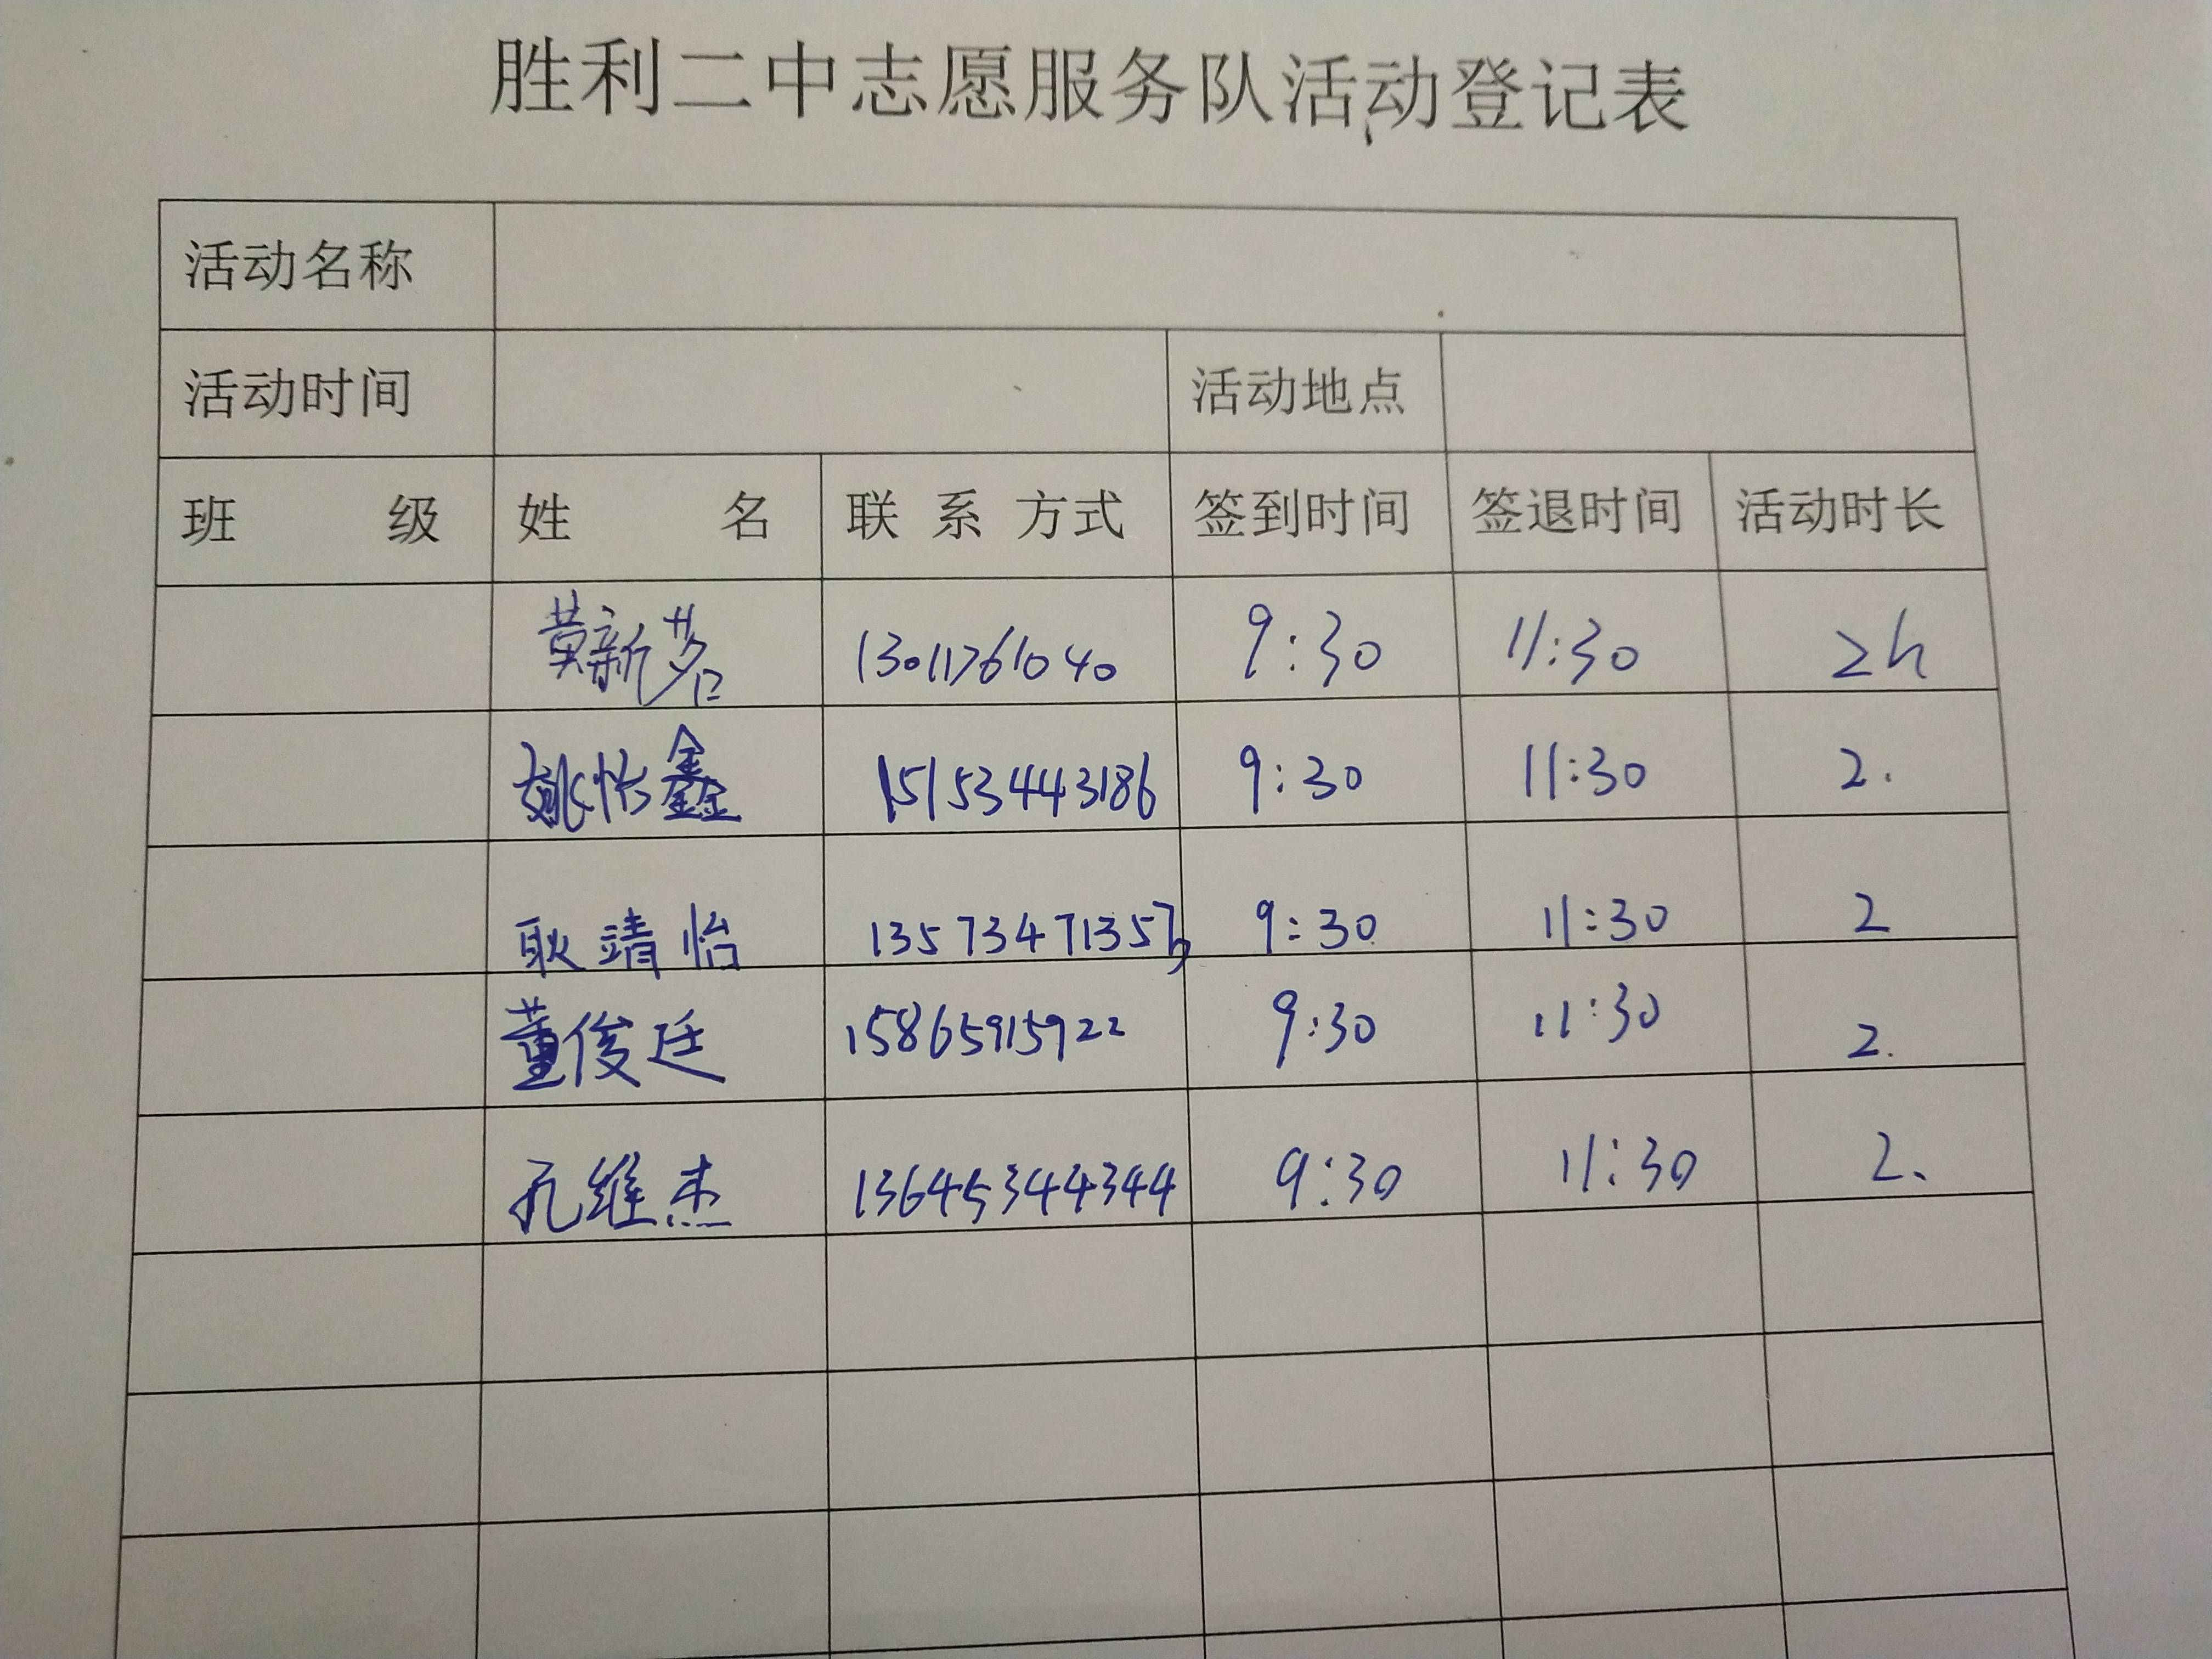 胜利二中志愿服务队活动登记表
活动名称
活动时间 活动地点
班 级 姓 名 联 系 方式 签到时间 签退时间 活动时长
黄新茗 13011761040 9:30 11:30 2h
姚怡鑫 15153443186 9:30 11:30 2.
耿靖怡 9:30 11:30 2
董俊廷 15865915922 9:30 11:30 2.
孔维杰 13645344344 9:30 11:30 2.